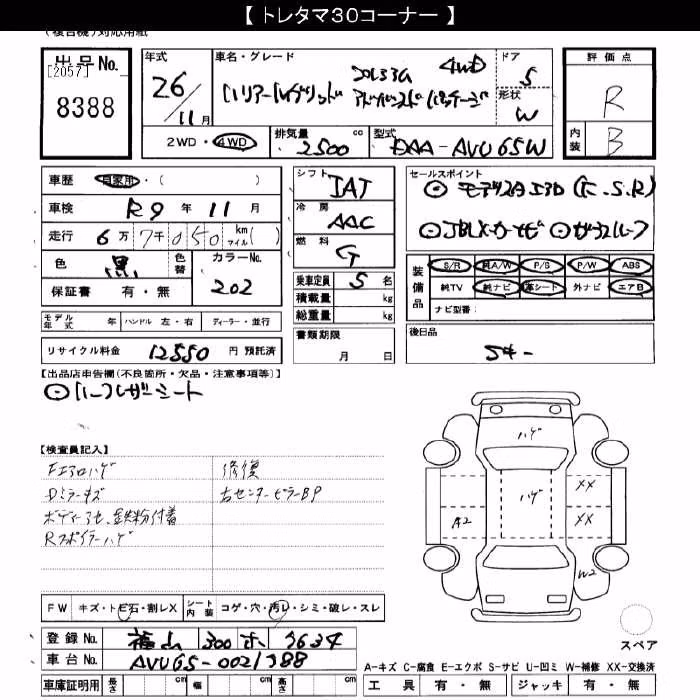 【 トレタマ30コーナー 】
(複合機)対応用紙
出品No.
[2057]
8388
年式
26
11月
車名・グレード
ハリアーハイブリッド
アドバンスドパッケージ
4WD
ドア
5
形状
W
評価点
R
内装
B
2WD・4WD
排気量
2500 cc
型式
DAA-AVU65W
車歴 自家用・( )
車検 R9年 11月
走行 6万7千050 km マイル( )
色 黒
色替
カラーNo.
202
保証書 有・無
シフト
IAT
冷房
AAC
燃料
G
乗車定員 5 名
積載量 kg
総重量 kg
セールスポイント
⊙モデリスタエアロ(F.S.R)
⊙JBLメーカーナビ ⊙ガラスルーフ
装備品
S/R 純A/W P/S P/W ABS
純TV 純ナビ 革シート 外ナビ エアB
ナビ型番:
モデル年式 年 ハンドル 左・右 ディーラー・並行
リサイクル料金 12550 円 預託済
書類期限
月 日
後日品
Sキー
【出品店申告欄(不良箇所・欠品・注意事項等)】
⊙ハーフレザーシート
【検査員記入】
Fエアロハゲ
Dミラーキズ
ボディーアセ、鉄粉付着
Rスポイラーハゲ
修復
右センターピラーBP
ハゲ
ハゲ
A2
XX
XX
W2
FW キズ・トビ石・割レX
シート内装 コゲ・穴・汚レ・シミ・破レ・スレ
登録No. 福山 300 ホ 3634
車台No. AVU65-0021388
車庫証明用 長さ cm 幅 cm 高さ cm
スペア
A-キズ C-腐食 E-エクボ S-サビ U-凹ミ W-補修 XX-交換済
工具 有・無 ジャッキ 有・無